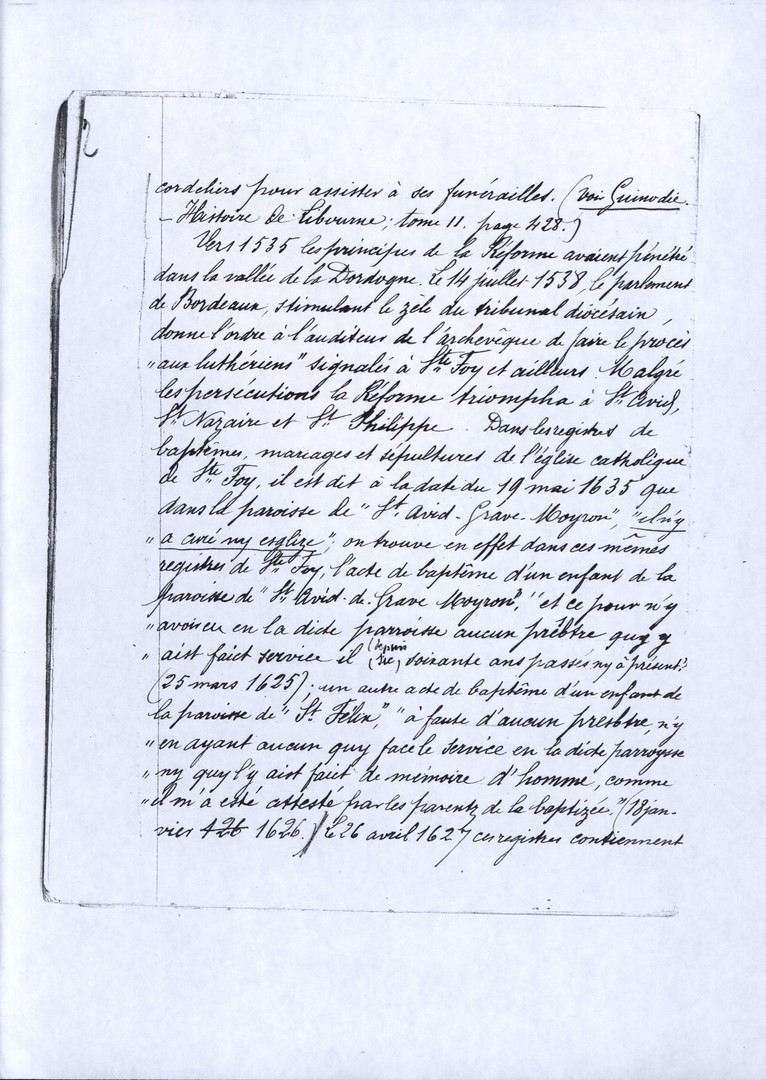 2
cordeliers pour assister à ses funérailles. (voir Guinodie.
– Histoire de Libourne, tome 11. page 428.)
Vers 1535 les principes de la Réforme avaient pénétré
dans la vallée de la Dordogne. Le 14 juillet 1538, le parlement
de Bordeaux, stimulant le zèle du tribunal diocésain,
donne l'ordre à l'auditeur de l'archevêque de faire le procès
"aux luthériens" signalés à Ste Foy et ailleurs Malgré
les persécutions la Réforme triompha à St Avid,
St Nazaire et St Philippe. Dans les registres de
baptêmes, mariages et sépultures de l'église catholique
de Ste Foy, il est dit à la date du 19 mai 1635 que
dans la paroisse de "St Avid-Grave-Moyron", "il n'y
"a curé ny esglize"; on trouve en effet dans ces mêmes
registres de Ste Foy, l'acte de baptême d'un enfant de la
paroisse de "St Avid-de-Grave Moyron", "et ce pour n'y
"avoir eu en la dicte parroisse aucun prêbtre quy y
"aist faict service il (depuis soixante ans passés ny à présent"
(25 mars 1625); un autre acte de baptême d'un enfant de
la paroisse de "St Félix", "à faute d'aucun presbtre, n'y
"en ayant aucun quy face le service en la dicte parroysse
"ny quy l'y aist faict de mémoire d'homme, comme
"il m'a esté attesté par les parentz de la baptizée." (18 jan-
vier 126 1626.) Le 26 avril 1627 ces registres contiennent